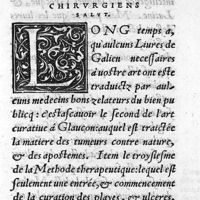 CHIRVRGIENS
SALVT.
LONG temps a,
qu'aulcuns Liures de
Galien necessaires
à vostre art ont esté
traduictz par aul-
cuns medecins bons zelateurs du bien pu
blicq: c'estasçauoir le second de l'art
curatiue à Glaucon: auquel est traictée
la matiere des tumeurs contre nature,
& des apostemes. Item le troysiesme
de la Methode therapeutique: lequel est
seulement une entrée, & commencement
de la curation des playes, & ulceres,